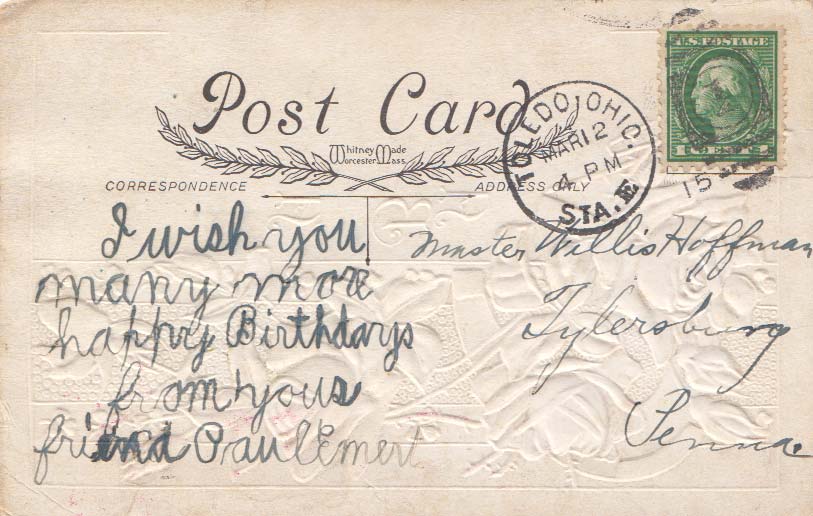 U.S. POSTAGE
1 CENTS 1
Post Card
Whitney Made
Worcester, Mass.
TOLEDO, OHIO.
MAR 12
4 PM
15
STA. E
CORRESPONDENCE
ADDRESS ONLY
I wish you
many more
happy Birthdays
from your
friend Paul Emert
Master Willis Hoffman
Tylersburg
Penna.